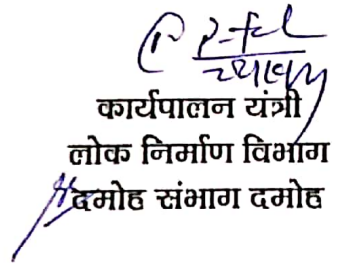 कार्यपालन यंत्री
लोक निर्माण विभाग
दमोह संभाग दमोह